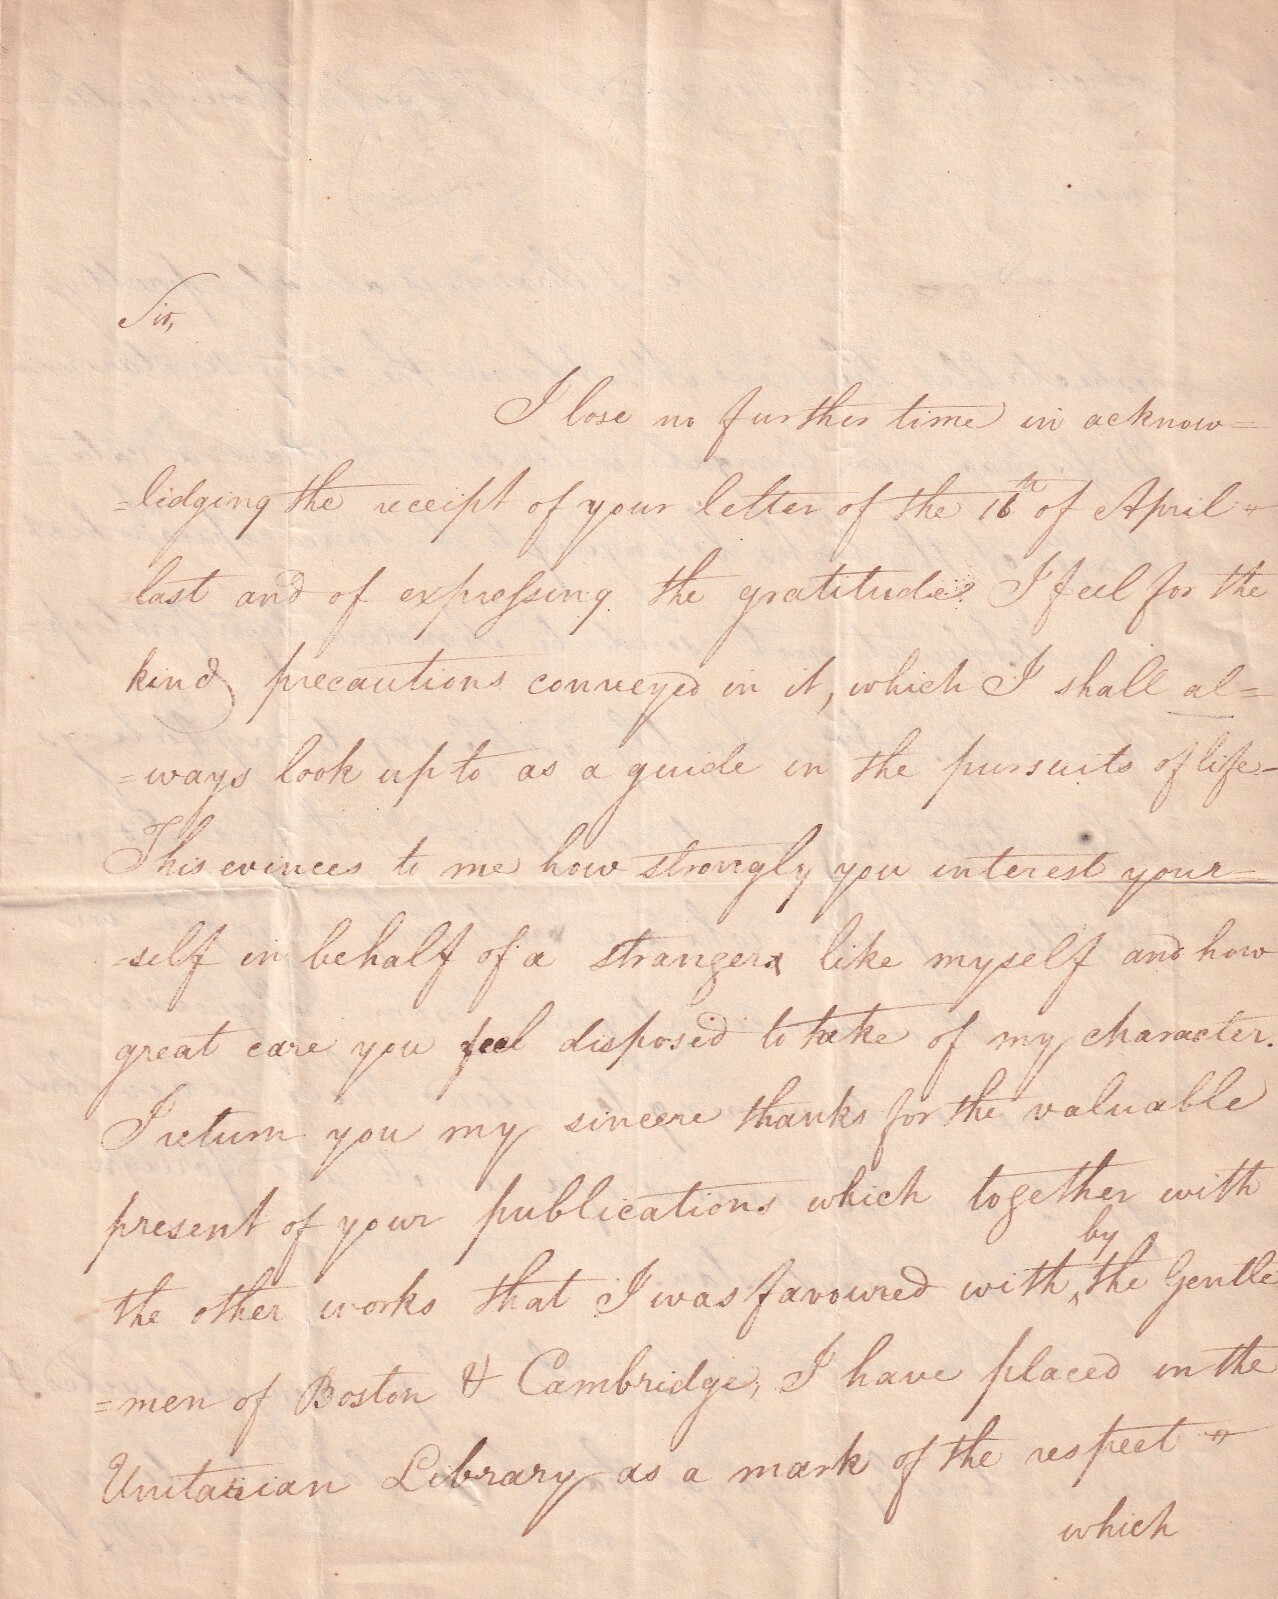 Sir,
I lose no further time in acknow=
=lidging the receipt of your letter of the 16th of April "
last and of expressing the gratitude I feel for the
kind precautions conveyed in it, which I shall al=
=ways look up to as a guide in the pursuits of life-
This evinces to me how strongly you interest your-
-self in behalf of a stranger like myself and how
great care you feel disposed to take of my character.
I return you my sincere thanks for the valuable
present of your publications which together with
by
the other works that I was favoured with ^ the Gentle
=men of Boston & Cambridge, I have placed in the
Unitarian Library as a mark of the respect "
which